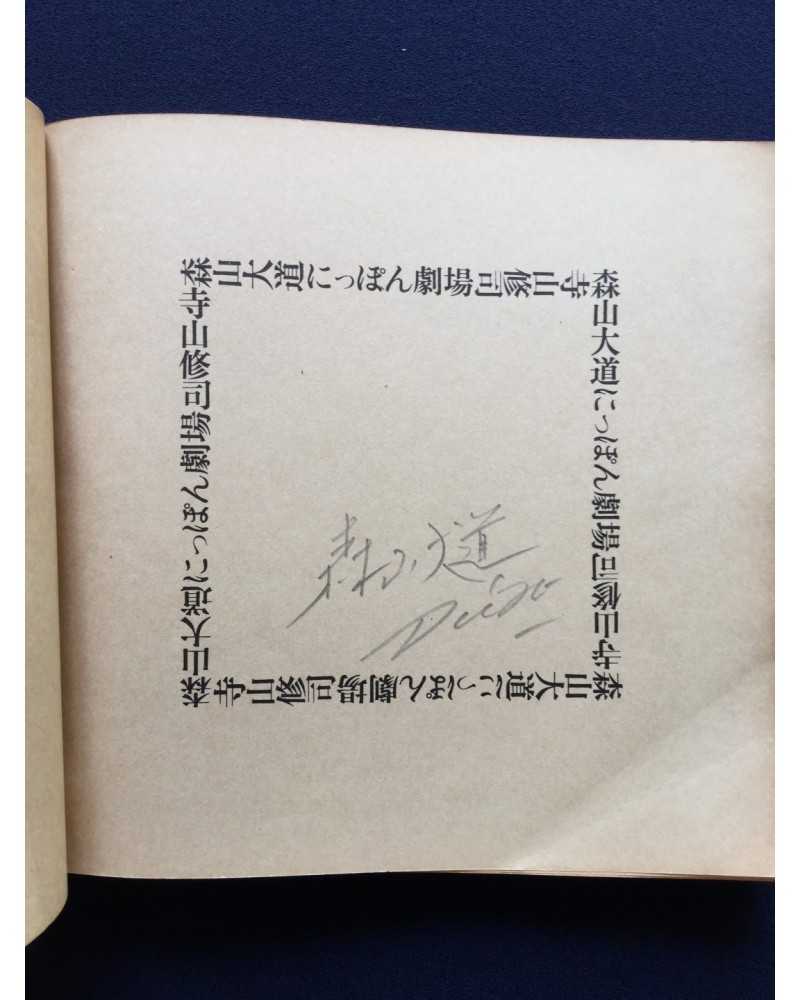 森山大道にっぽん劇場司修山寺
森山大道にっぽん劇場司修山寺
森寺山修司場劇んぽっに道大山森
森寺山修司場劇んぽっに道大山森
森山大道
Daido